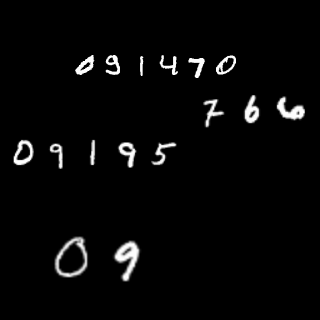 091470
766
09195
09